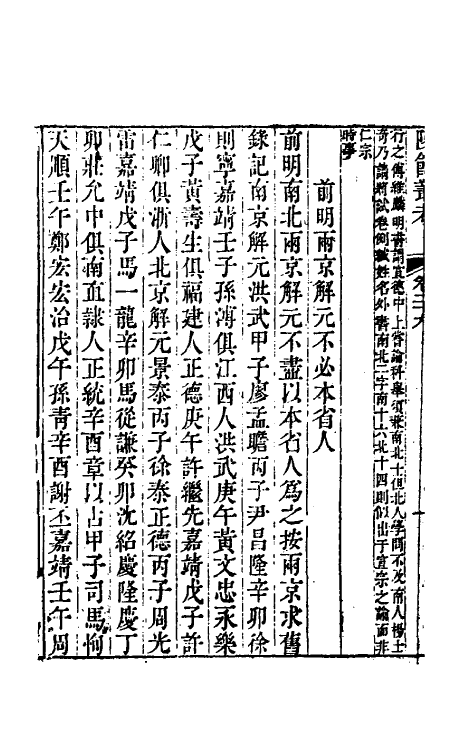 陔餘叢考 卷二十九
行之傳維鱗明書謂宣德中上嘗論科舉須兼南北十但北人學問不及南人楊士
奇乃請將試卷例緘姓名外書南北二字南十六北十四則似出于宣宗之諭而非
仁宗
時事
前明兩京解元不必本省人
前明南北兩京解元不盡以本省人為之按兩京求舊
錄記南京解元洪武甲子廖孟瞻丙子尹昌隆辛卯徐
則寧嘉靖壬子孫溥俱江西人洪武庚午黃文忠永樂
戊子黃壽生俱福建人正德庚午許繼先嘉靖戊子許
仁卿俱浙人北京解元景泰丙子徐泰正德丙子周光
雷嘉靖戊子馬一龍辛卯馬從謙癸卯沈紹慶隆慶丁
卯莊允中俱南直隸人正統辛酉章以占甲子司馬恂
天順壬午鄭宏宏治戊午孫青辛酉謝丕嘉靖壬午周